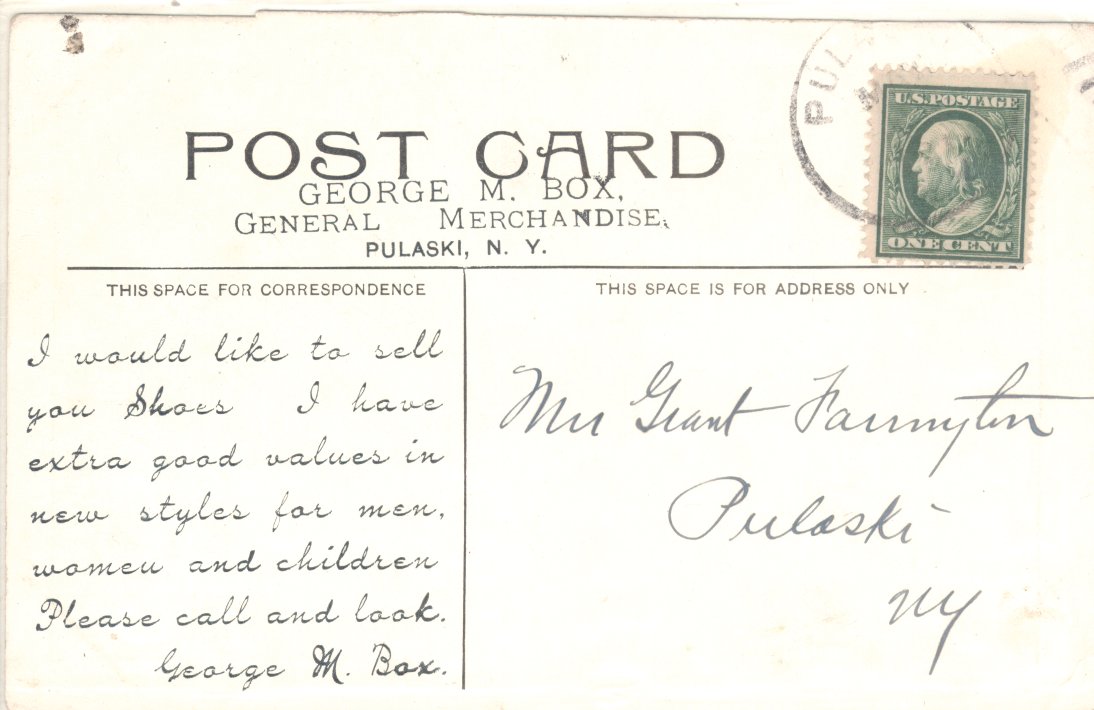 POST CARD
GEORGE M. BOX,
GENERAL MERCHANDISE,
PULASKI, N. Y.
PUL
U.S. POSTAGE
ONE CENT
THIS SPACE FOR CORRESPONDENCE
I would like to sell
you Shoes I have
extra good values in
new styles for men,
women and children
Please call and look.
George M. Box.
THIS SPACE IS FOR ADDRESS ONLY
Grant Farrington
Pulaski
NY